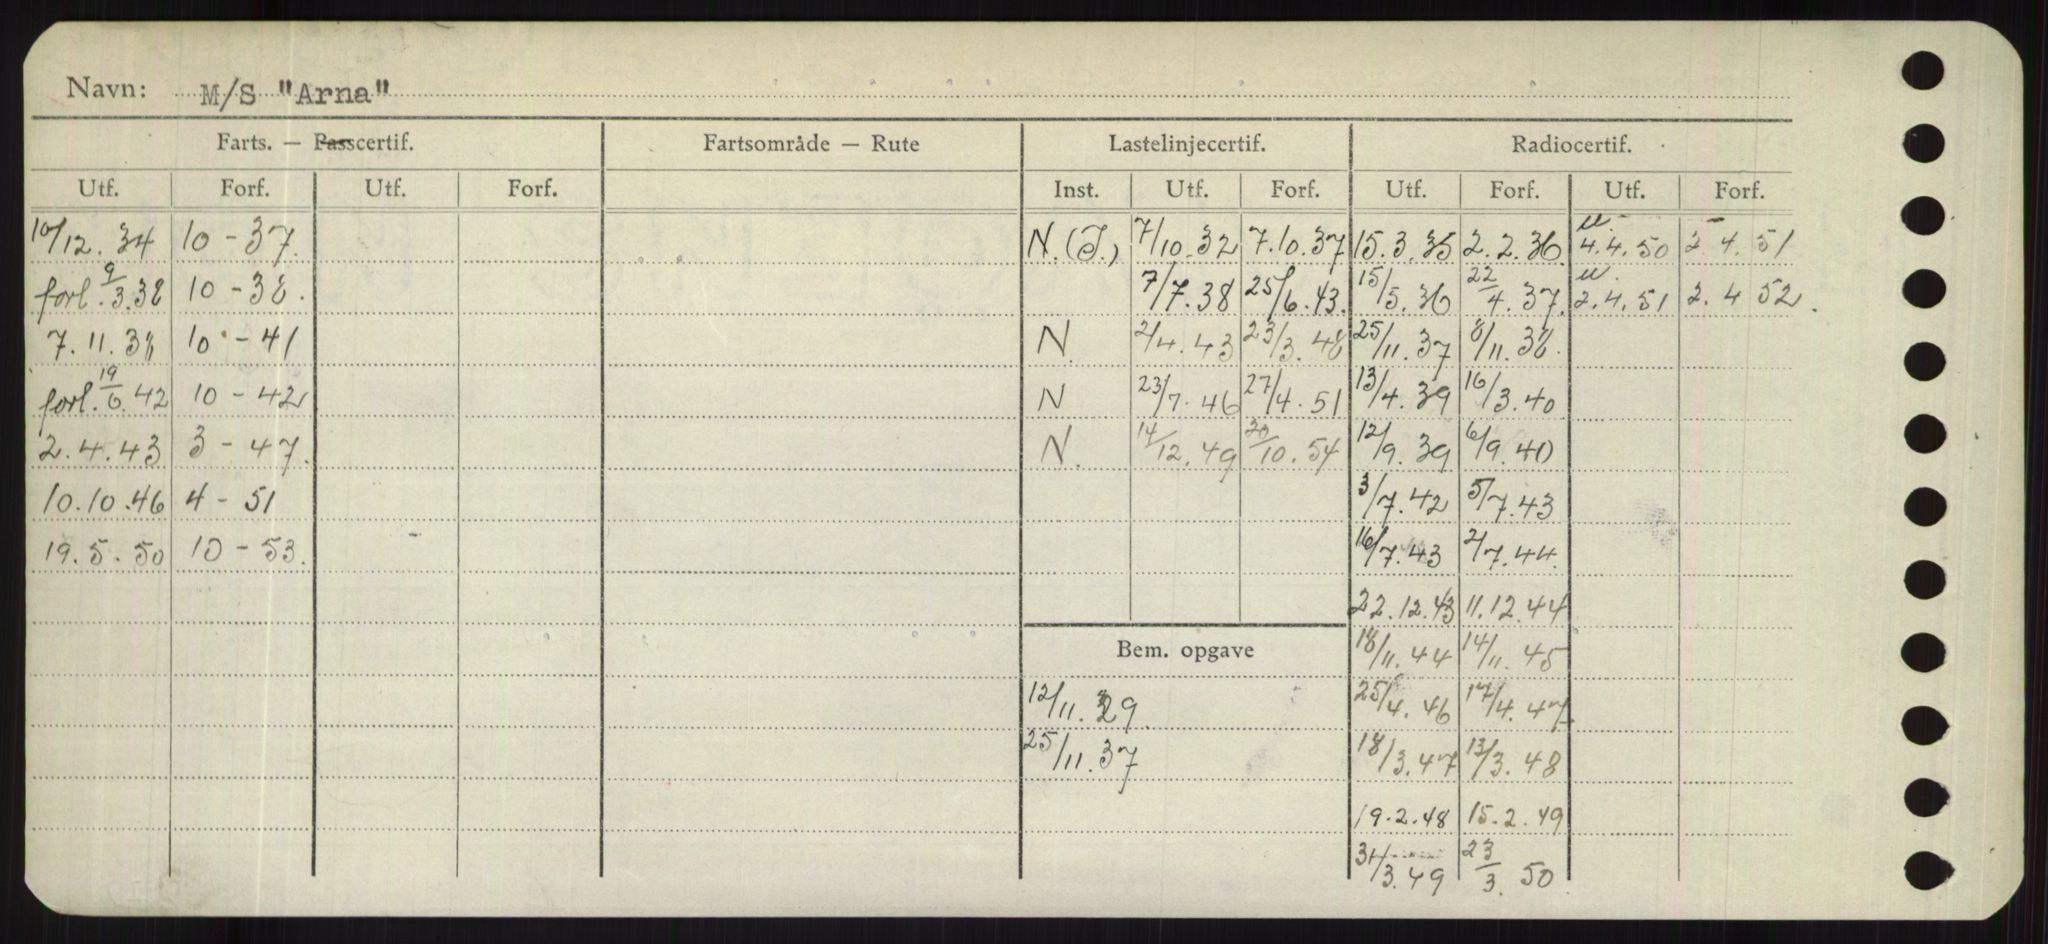 Navn: M/S "Arna"
Farts. — Passcertif. Fartsområde — Rute Lastelinjecertif. Radiocertif.
Utf. Forf. Utf. Forf. Inst. Utf. Forf. Utf. Forf. Utf. Forf.
10/12. 34 10 - 37. N. (I.) 7/10. 32 7.10.37 15. 3. 35 2. 2. 36. u. 4. 4. 50 2. 4. 51
forl. 9/3. 38 10 - 38. 7/7. 38 25/6. 43. 15/5. 36 22/4. 37. u. 2. 4. 51 2. 4 52.
7. 11. 38 10 - 41 N. 2/4. 43 23/3. 48 25/11. 37 8/11. 38.
forl. 19/6. 42 10 - 42 N 23/7. 46 27/4. 51 13/4. 39 16/3. 40
2. 4. 43 3 - 47. N. 14/12. 49 20/10. 54 12/9. 39 6/9. 40
10. 10. 46 4 - 51 3/7. 42 5/7. 43
19. 5. 50 10 - 53. 16/7. 43 2/7. 44.
22. 12. 43 11. 12. 44
Bem. opgave 18/11. 44 14/11. 45
12/11. 29 25/4. 46 17/4. 47.
25/11. 37 18/3. 47 13/3. 48
19. 2. 48 15. 2. 49
31/3. 49 23/3. 50